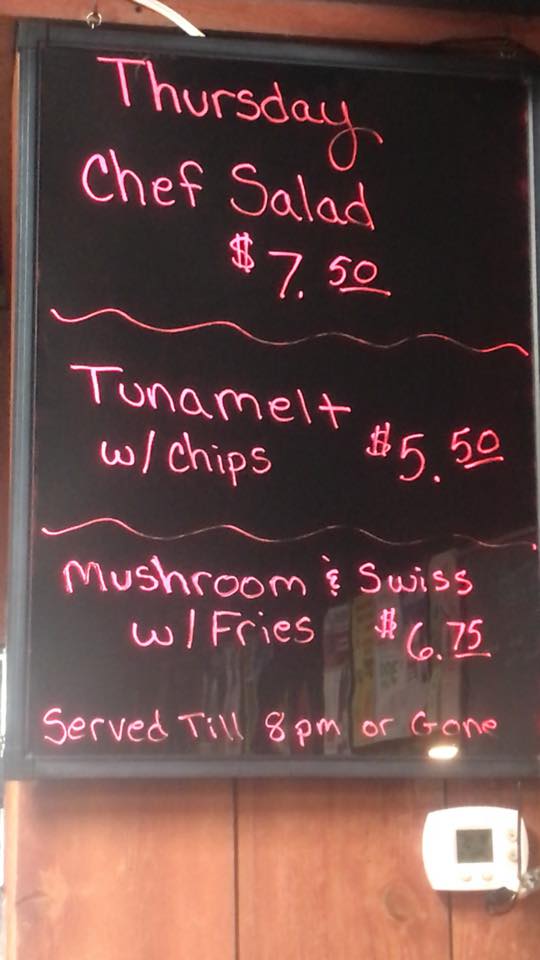 Thursday
Chef Salad
$7.50
Tunamelt
w/chips $5.50
Mushroom & Swiss
w/Fries $6.75
Served Till 8pm or Gone